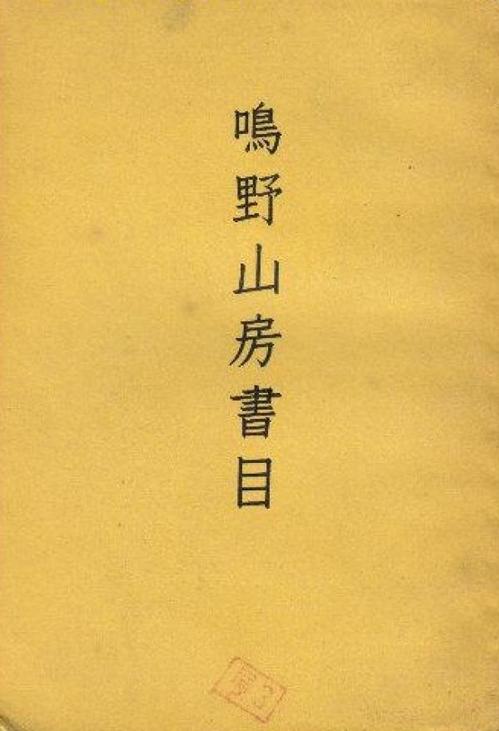 鳴野山房書目